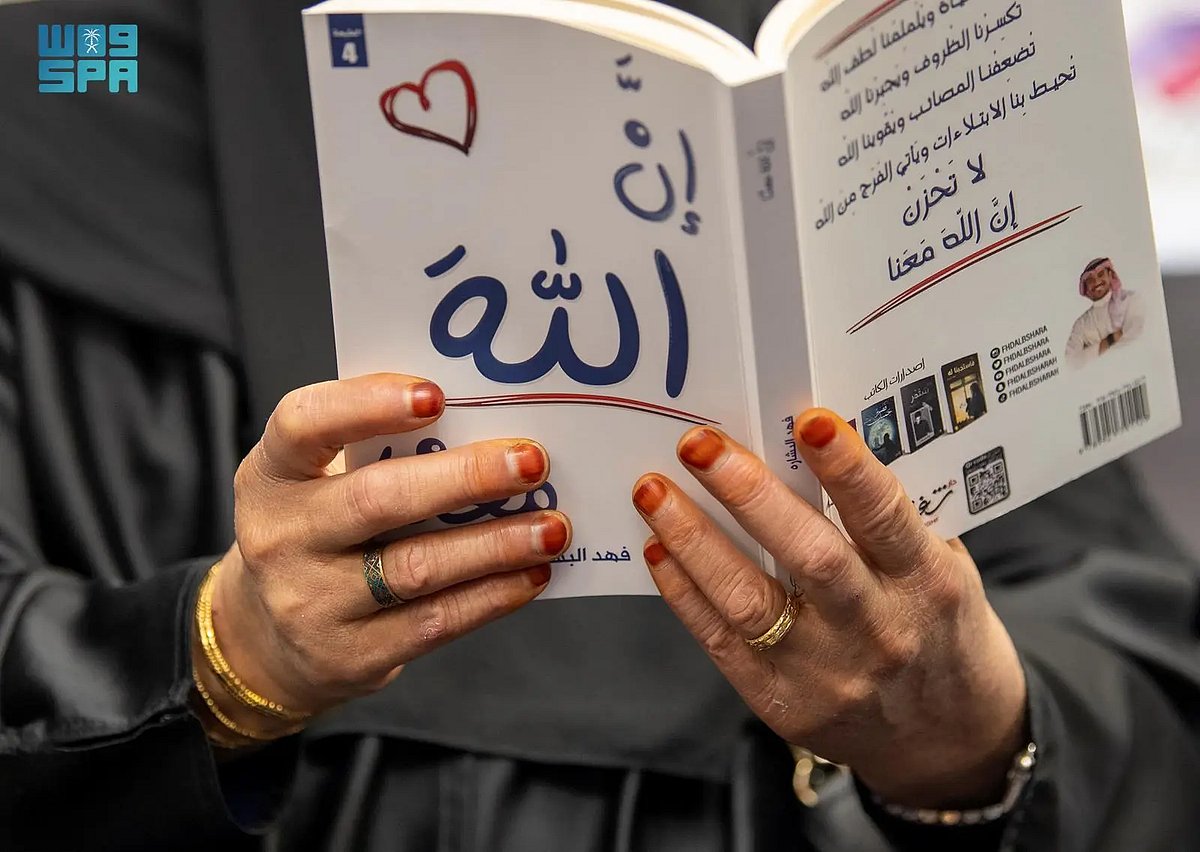 واس
SPA
الطبعة
4
إنّ
اللّهَ
فهد
إنّ اللّه معنا
فهد البشاره
ويلملمنا لطف اللّه
تكسرنا الظروف ويجبرنا اللّه
تضعفنا المصائب ويقوينا اللّه
تحيط بنا الابتلاءات ويأتي الفرج من اللّه
لا تَحْزَنْ
إنَّ اللّهَ مَعَنا
إصدارات الكاتب
فاستجبنا له
FHDALBSHARA
FHDALBSHARA
FHDALBSHARA
FHDALBSHARAH
FHDALBSHARAH